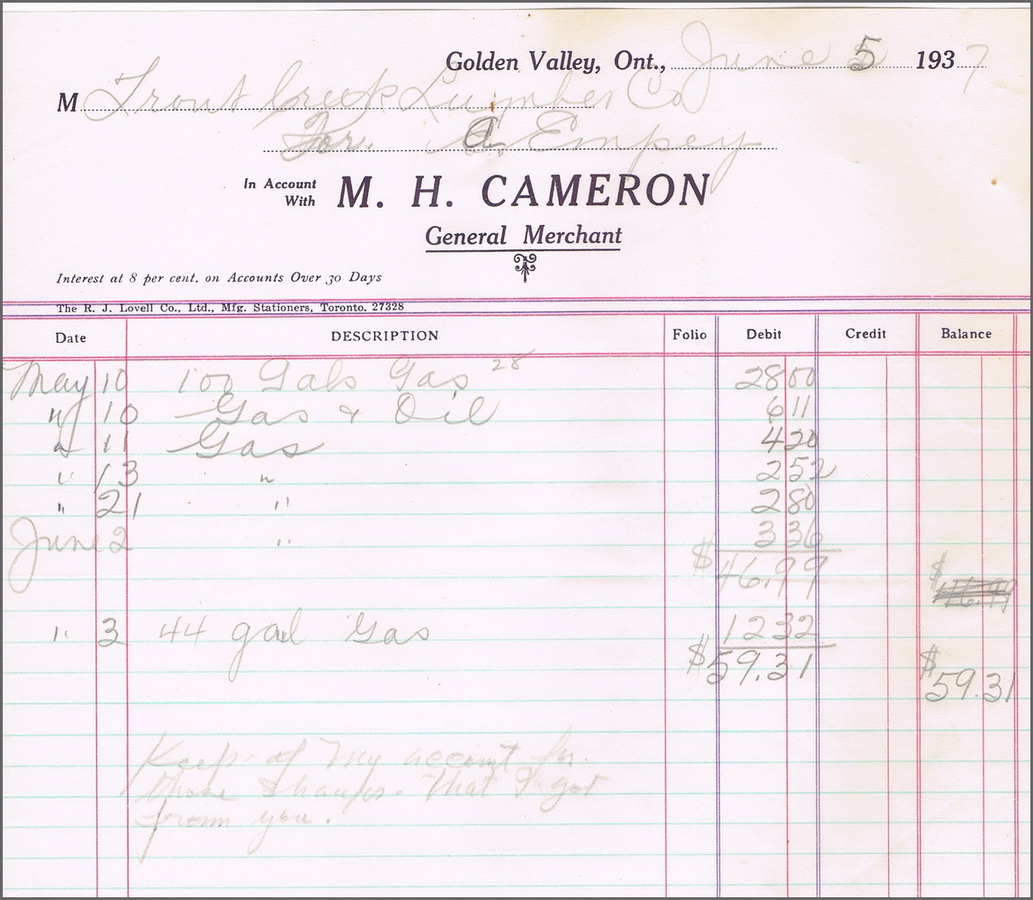 Golden Valley, Ont., June 5 1937
M Trout Creek Lumber Co
For. A. Empey
In Account With M. H. CAMERON
General Merchant
Interest at 8 per cent. on Accounts Over 30 Days
The R. J. Lovell Co., Ltd., Mfg. Stationers, Toronto. 27328
Date DESCRIPTION Folio Debit Credit Balance
May 10 100 Gals Gas 28 28 00
" 10 Gas & Oil 6 11
" 11 Gas 4 20
" 13 " 2 52
" 21 " 2 80
June 2 " 3 36
$46.99 $46.99
" 3 44 gal Gas 12 32
$59.31 $59.31
Keep of My account for
those That I got
from you.